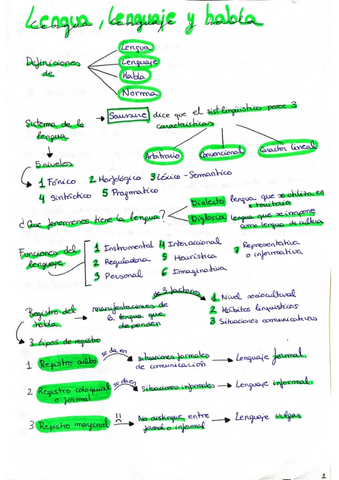 Lengua, Lenguaje y habla
Definiciones de
Lengua
Lenguaje
Habla
Norma
Sistema de la lengua
Saussure dice que el sist. lingüístico posee 3 características
Arbitrario
Convencional
Caracter lineal
Escuelas
1 Fónico 2 Morfológico 3 Léxico - Semantico
4 Sintáctico 5 Pragmatico
¿Que fenomenos tiene la lengua?
Dialecto lengua que se utiliza en
territorio
Diglosia lengua que se impone
como lengua de cultura
Funciones del lenguaje
1 Instrumental
2 Reguladora
3 Personal
4 Interaccional
5 Heurística
6 Imaginativa
7 Representativa o informativa
Registro del habla
manifestaciones de la lengua que dependen
de 3 factores
1 Nivel sociocultural
2 Hábitos linguisticos
3 Situaciones comunicativas
3 tipos de registro
1 Registro culto se da en situaciones formales de comunicación Lenguaje formal
2 Registro coloquial o formal se da en Situaciones informales Lenguaje informal
3 Registro marginal !! No distingue entre formal o informal Lenguaje vulgar
1